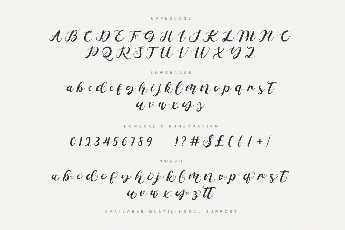 UPPERCASE
A B C D E F G H I J K L M N O
P Q R S T U V W X Y Z
LOWERCASE
a b c d e f g h i j k l m n o p q r s t
u v w x y z
NUMERAL & PUNCTUATION
0 1 2 3 4 5 6 7 8 9 ! ? # $
SWASH
a b c d e f g h i j k l m n o p q r s t
u v w x y z
AVAILABLE MULTILINGUAL SUPPORT